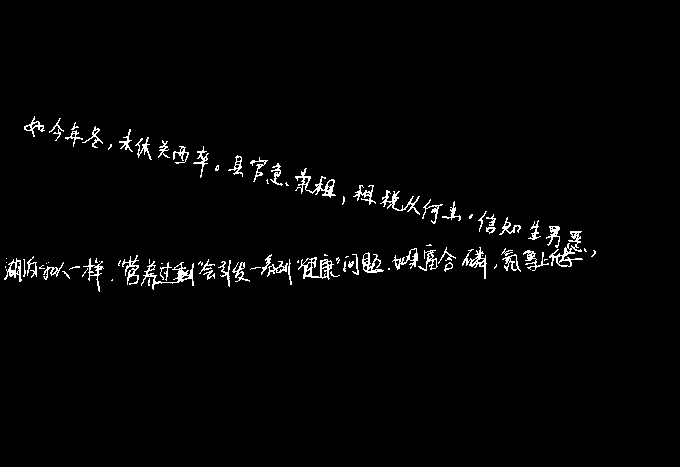 如今年冬，未休关西卒。县官急索租，租税从何出。信知生男恶，
湖泊和人一样，“营养过剩”会引发一系列“健康”问题．如果富含磷，氮等化学，